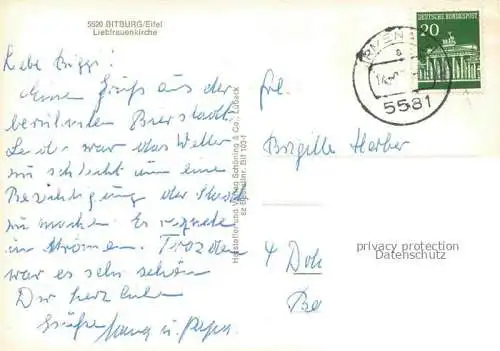 5520 BITBURG/Eifel
Liebfrauenkirche
Liebe Biggi!
Einen Gruß aus der
berühmten Bierstadt.
Leider war das Wetter
zu schlecht um eine
Besichtigung der Stadt
zu machen. Es regnete
in Strömen. Trotzdem
war es sehr schön
Dir herzliche
Grüße Mama u. Papa.
Schöning & Co., Lübeck
DEUTSCHE BUNDESPOST
20
5581
Frl.
Brigitte Harber
4 Dol
Be
privacy protection